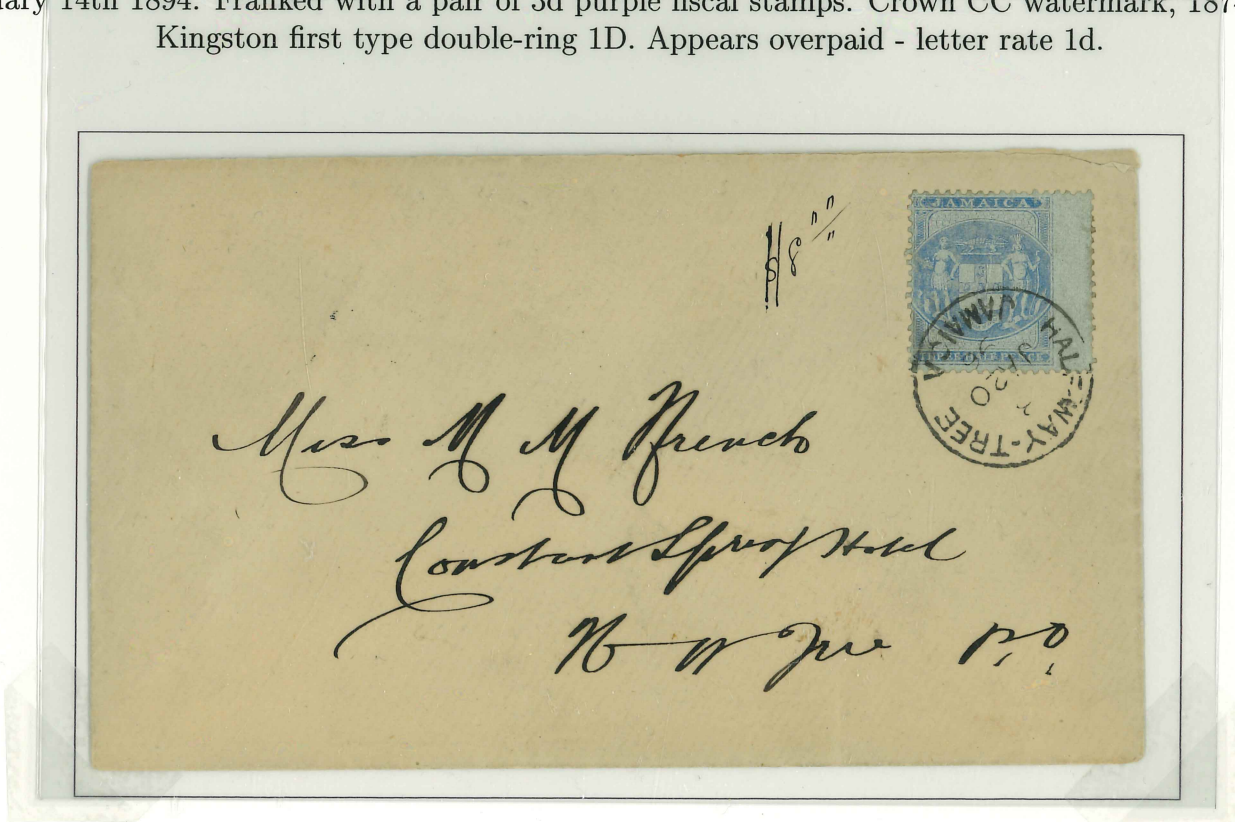 14th 1894. Franked with a pair of 3d purple fiscal stamps. Crown CC watermark,
Kingston first type double-ring 1D. Appears overpaid - letter rate 1d.
JAMAICA
HALF-WAY-TREE
JAMAICA
JA 20
96
Miss M M French
Constant Spring Hotel
H W Tree P.O.